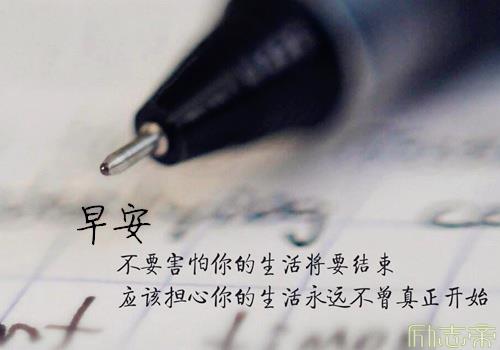 早安
不要害怕你的生活将要结束
应该担心你的生活永远不曾真正开始
励志帝